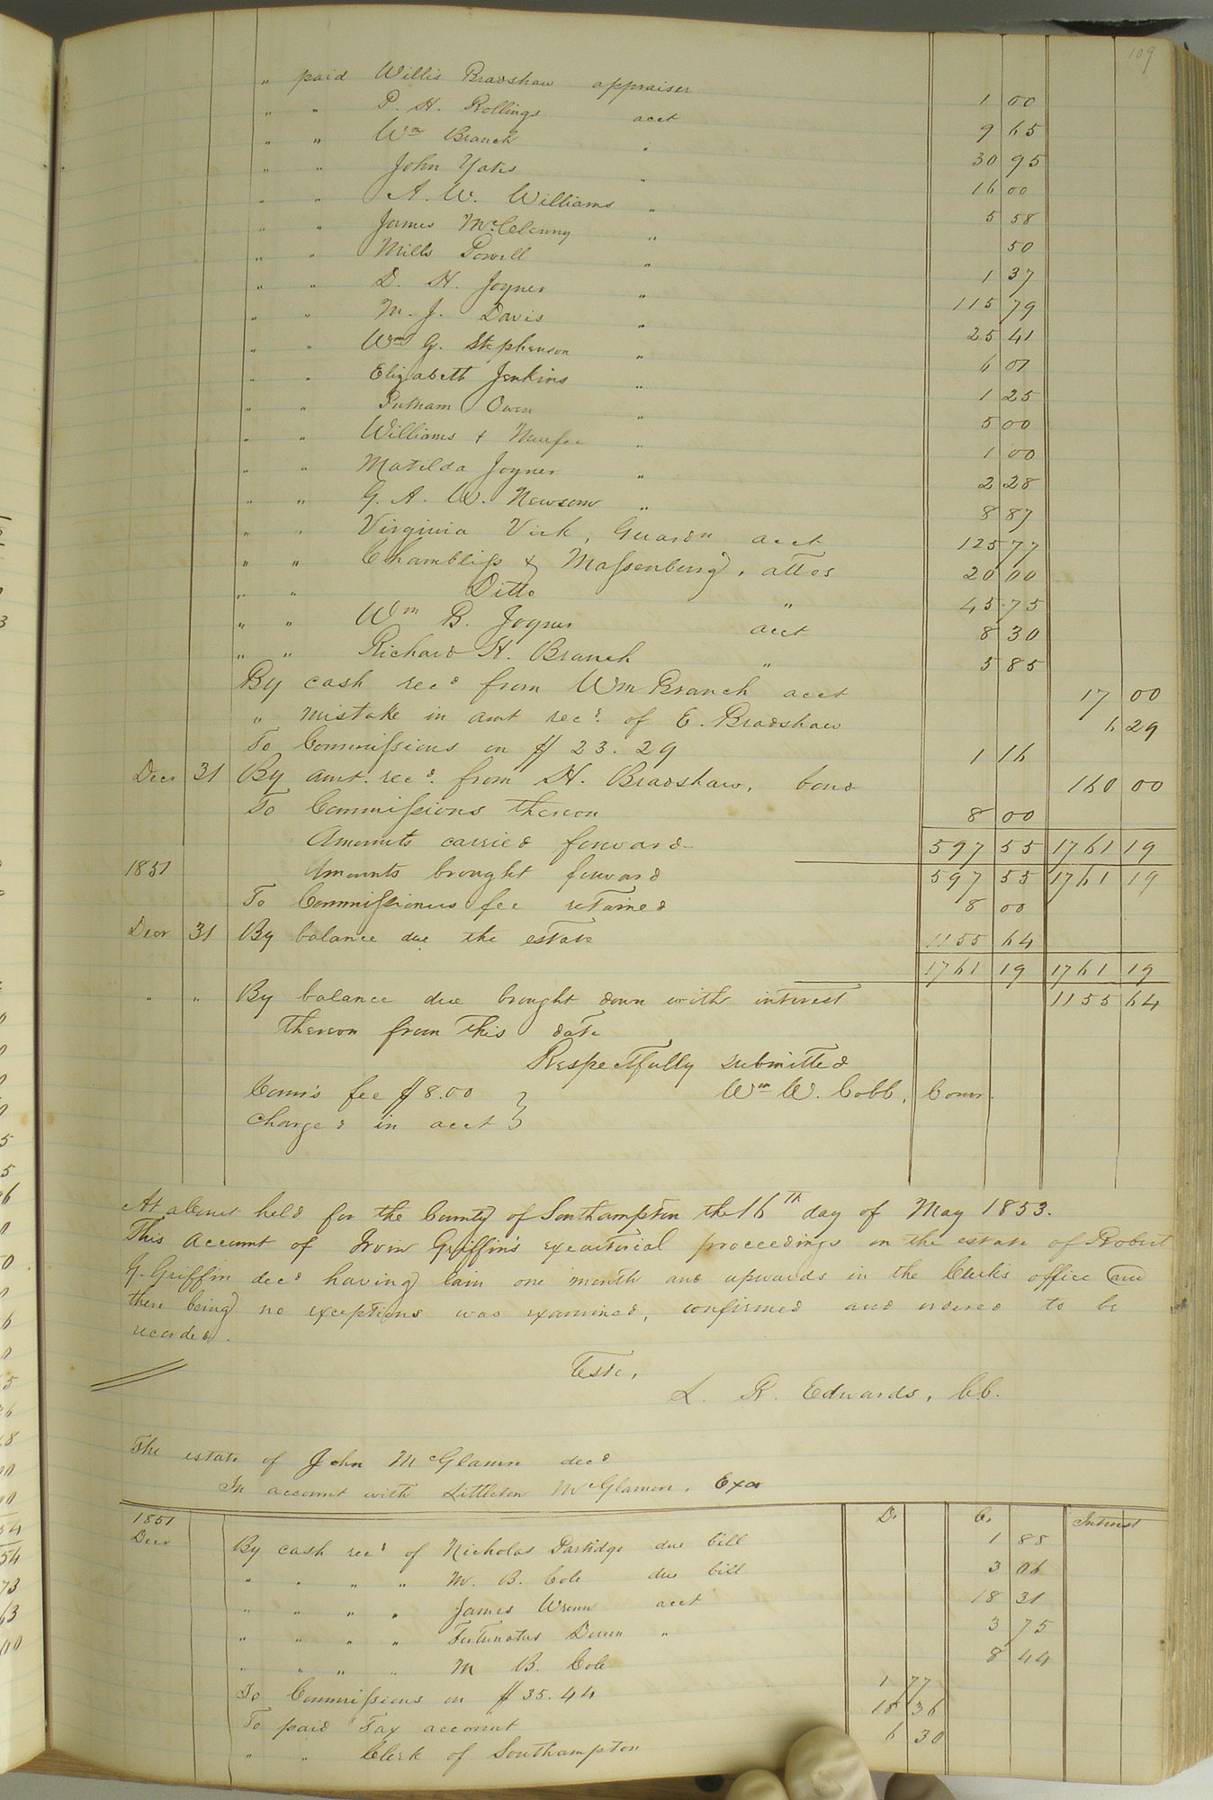 109
" paid Willis Bradshaw appraiser 1 00
" " P. H. Rollings acct 9 65
" " Wm Branch " 30 95
" " John Yates " 16 00
" " A. W. Williams " 5 58
" " James McClenny " 50
" " Mills Powell " 1 37
" " D. H. Joyner " 115 79
" " M. J. Davis " 25 41
" " Wm G. Stephenson " 6 07
" " Elizabeth Jenkins " 1 25
" " Putnam Owen " 5 00
" " Williams & Murfee " 1 00
" " Matilda Joyner " 2 28
" " G. A. W. Newsom " 8 87
" " Virginia Vick, Guardn acct 125 77
" " Chambliss & Massenburg, attos 20 00
" " Ditto " 45 75
" " Wm B. Joyner acct 8 30
" " Richard H. Branch " 5 85
By cash recd from Wm Branch acct 17 00
" mistake in amt recd of E. Bradshaw 6 29
To Commissions on $ 23.29 1 16
Decr 31 By amt. recd from H. Bradshaw, bond 160 00
To Commissions thereon 8 00
Amounts carried forward 597 55 1761 19
1851 Amounts brought forward 597 55 1761 19
To Commissioners fee retained 8 00
Decr 31 By balance due the estate 1155 64
1761 19 1761 19
" " By balance due brought down with interest 1155 64
thereon from this date
Respectfully submitted
Com's fee $ 8.00 } Wm W. Cobb, Comr.
Charged in acct }
At a Court held for the County of Southampton the 16th day of May 1853.
This account of Irvin Griffin's executorial proceedings on the estate of Robert
G. Griffin decd having lain one month and upwards in the Clerks office and
there being no exceptions was examined, confirmed and ordered to be
recorded.
Teste,
L. R. Edwards, C.C.
The estate of John McGlamn decd
In account with Littleton McGlamon, Exor
1851 Dr Cr Interest
Decr By cash recd of Nicholas Partidge due bill 1 85
" " " " M. B. Cole due bill 3 06
" " " " James Wrenn acct 18 31
" " " " Fortunatus " 3 75
" " " " M B. Cole 8 44
To Commissions on $ 35.44 1 77
To paid Tax account 18 36
" " Clerk of Southampton 6 30